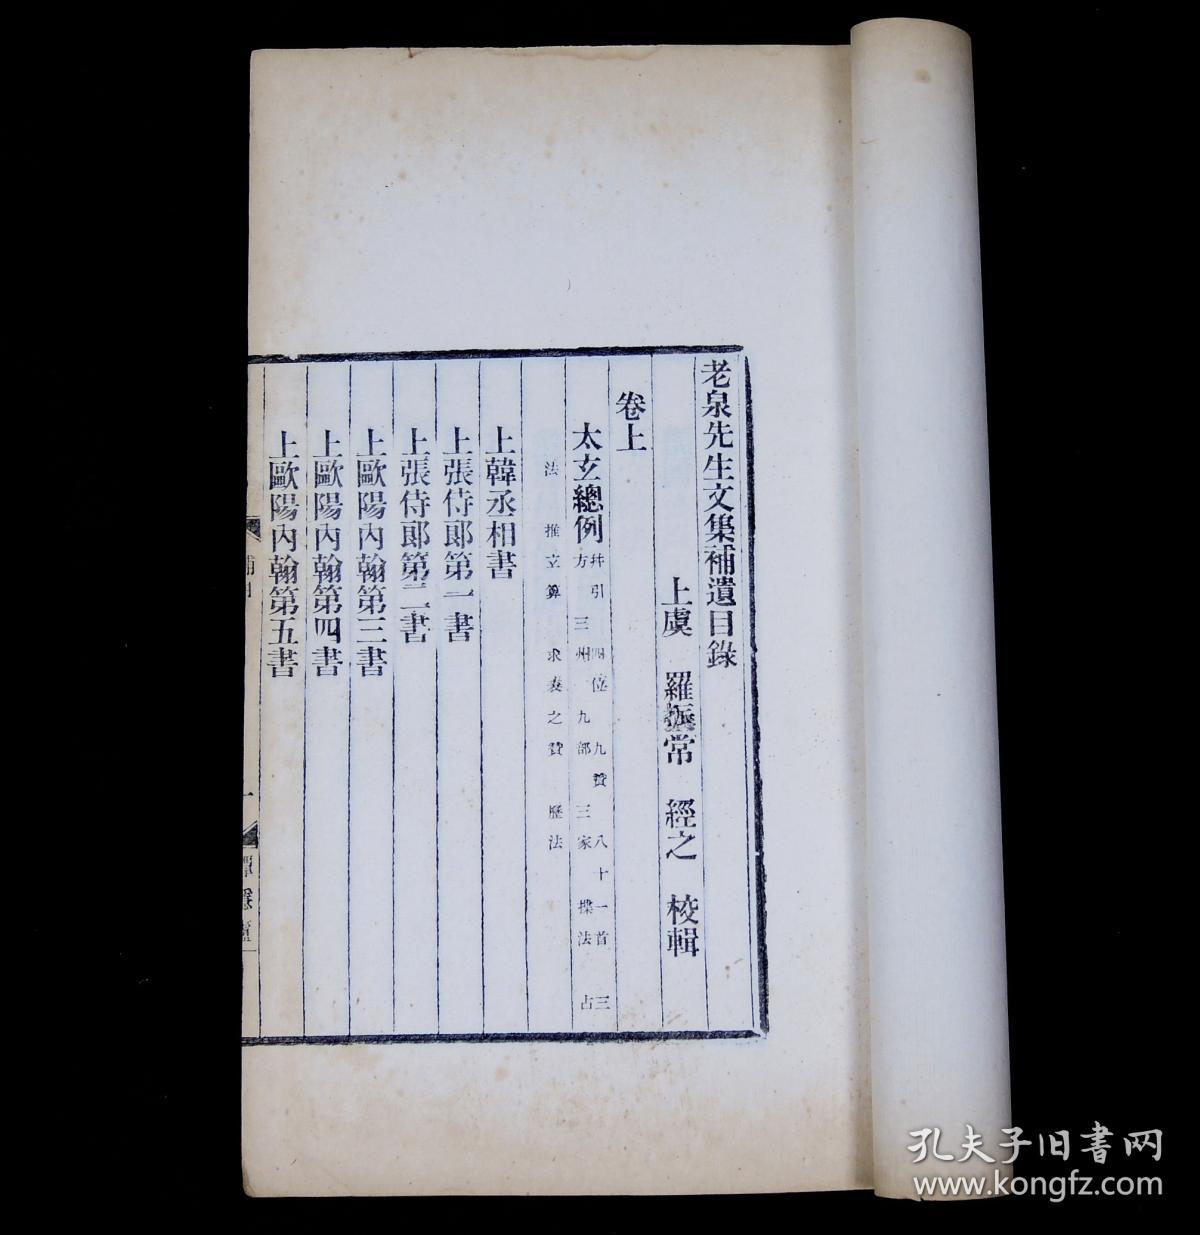 老泉先生文集補遺目錄
上虞 羅振常 經之 校輯
卷上
太玄總例 幷引 四位 九贊 八十一首 三
方 三州 九部 三家 揲法 占
法 推立算 求表之贊 歷法
上韓丞相書
上張侍郞第一書
上張侍郞第二書
上歐陽內翰第三書
上歐陽內翰第四書
上歐陽內翰第五書
補目
一
孔夫子旧书网
www.kongfz.com